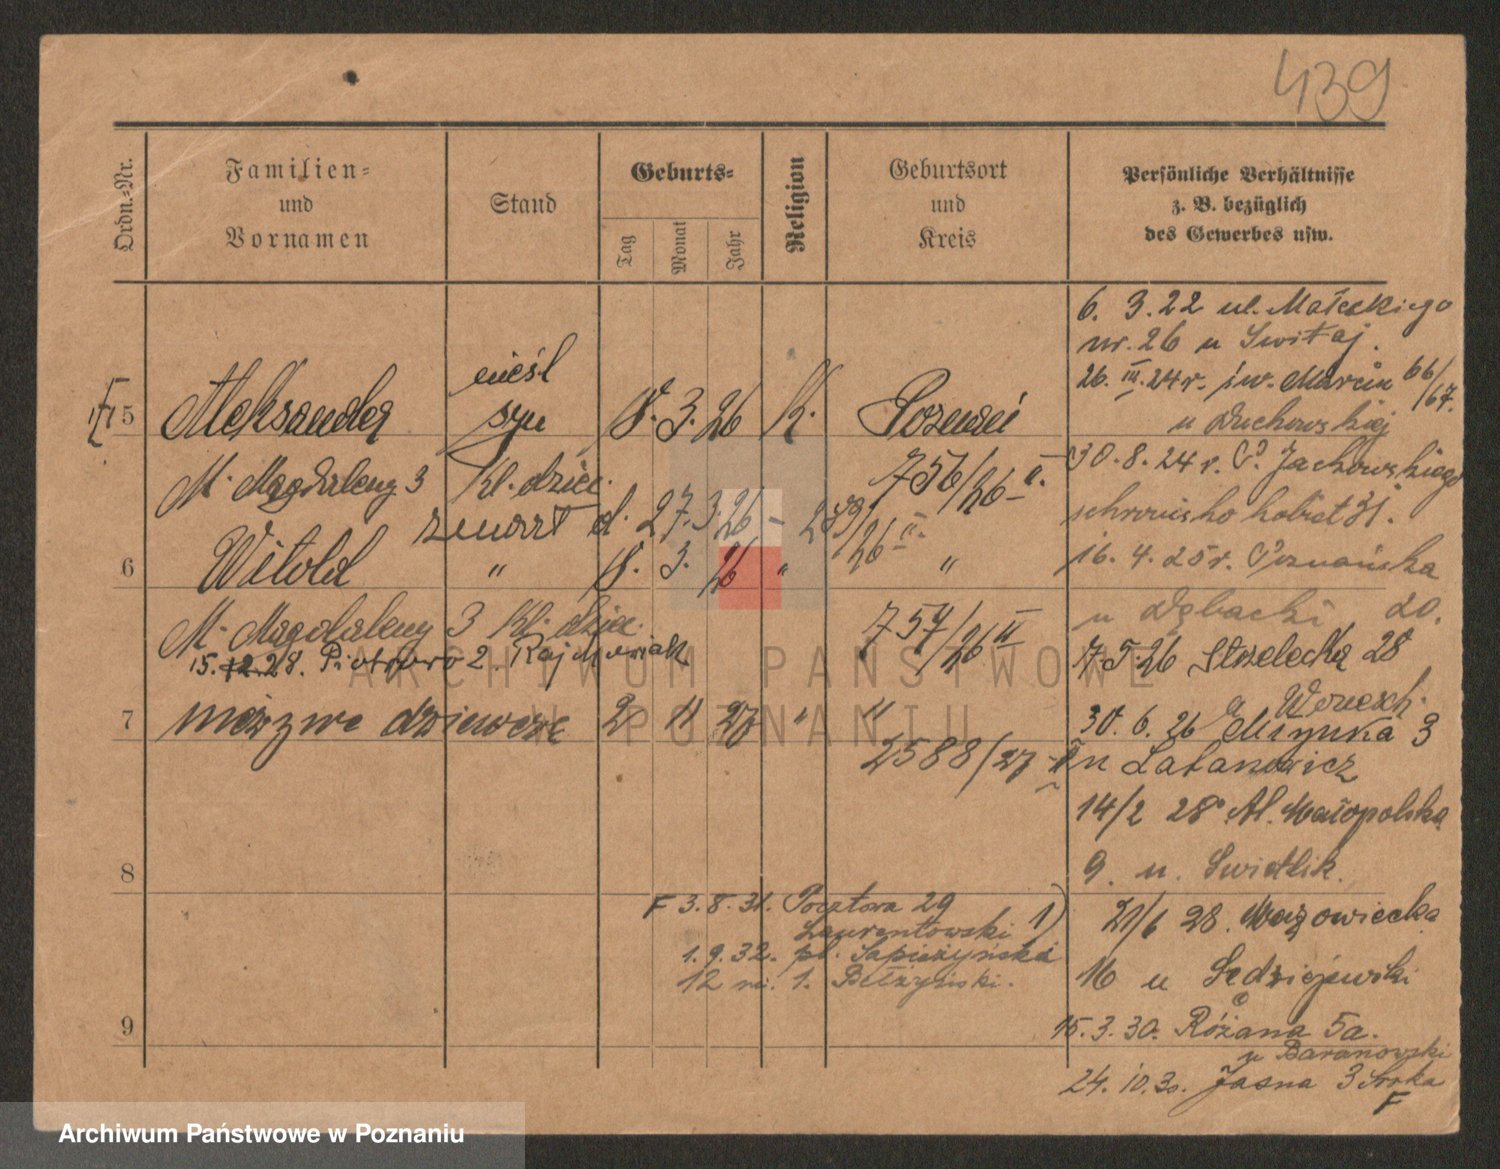 439
Ordn.-Nr.
Familien-
und
Vornamen
Stand
Geburts-
Tag
Monat
Jahr
Religion
Geburtsort
und
Kreis
Persönliche Verhältnisse
z. B. bezüglich
des Gewerbes usw.
6. 3. 22 ul. Małeckiego
nr. 26 u Switaj.
26. III. 24 r. św. Marcin 66/67.
u Duchowskiej
30. 8. 24 r.
16. 4. 25 r. Poznańska
u Dąbacki 20.
Strzelecka 28
30. 6. 26 Młyńska 3
u Łabanowicz
14/2 28 Małopolska
9 u. Swietlik.
21/6 28. Mazowiecka
16 u Sędziejewski
15. 3. 30. Różana 5a.
u Baranowski
24. 10. 30. Jasna 3 Sroka
F
5 Aleksander nieśl
syn 8. 3. 26 K. Poznań
M. Magdaleny 3 Kl. dziec. 756/26 II.
d. 27. 3. 26
6 Witold " 8. 3. 26 " "
M. Magdaleny 3 Kl. dziec. 757/26 II
15. 12. 28. Piotrowo 2 Rajchowiak
7 nieżywe dziewczę 2 11 27 " "
2588/27
8
F 3. 8. 31. Pocztowa 29
Laurentowski 1)
1. 9. 32. pl. Sapieżyńska
12 m. 1. Bełżyński.
9
ARCHIWUM PAŃSTWOWE
W POZNANIU
Archiwum Państwowe w Poznaniu